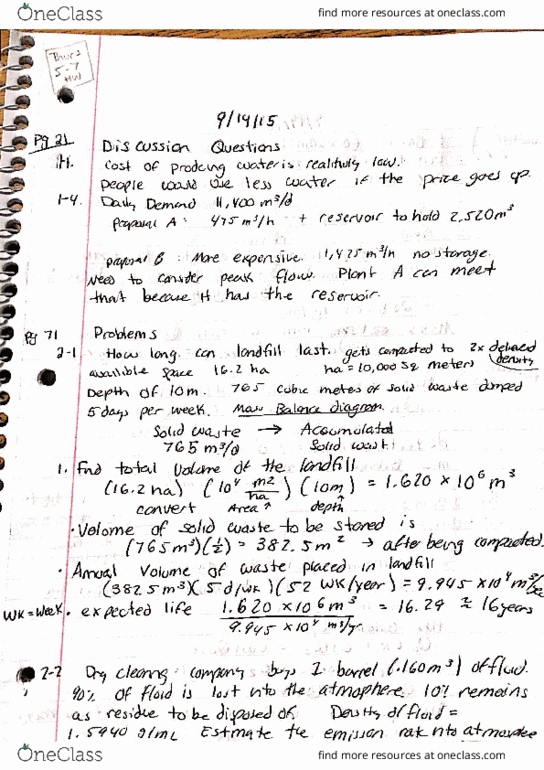 OneClass
find more resources at oneclass.com
Thurs
5-7
HW
9/14/15
Pg 21 Discussion Questions
1-1. Cost of producing water is relatively low.
People would use less water if the price goes up.
1-4. Daily Demand 11,400 m³/d
Proposal A: 475 m³/h + reservoir to hold 2,520 m³
proposal B: More expensive 1,425 m³/h no storage.
Need to consider peak flow. Plant A can meet
that because it has the reservoir.
Pg 71 Problems
2-1. How long can landfill last gets compacted to 2x delivered density
available space 16.2 ha ha = 10,000 sq meters
Depth of 10m. 765 cubic meters of solid waste dumped
5 days per week. Mass Balance diagram.
Solid waste → Accumulated
765 m³/d Solid wast
1. Find total volume of the landfill
(16.2 ha) (10⁴ m2/ha) (10m) = 1.620 × 10⁶ m³
convert Area ↑ depth ↑
• Volume of solid waste to be stored is
(765m³)(½) = 382.5 m² → after being compacted.
• Annual volume of waste placed in landfill
(382.5 m³)(5 d/wk)(52 WK/year) = 9.945 × 10⁴ m³/
WK = Week. • expected life 1.620 × 10 6 m³ / 9.945 × 10⁴ m³/yr = 16.29 ≈ 16 years
2-2 Dry cleaning company buys 1 barrel (.160 m³) of fluid.
90% of fluid is lost into the atmosphere. 10% remains
as residue to be disposed of. Density of fluid =
1.5940 g/mL Estimate the emission rate into atmosphere
OneClass
find more resources at oneclass.com